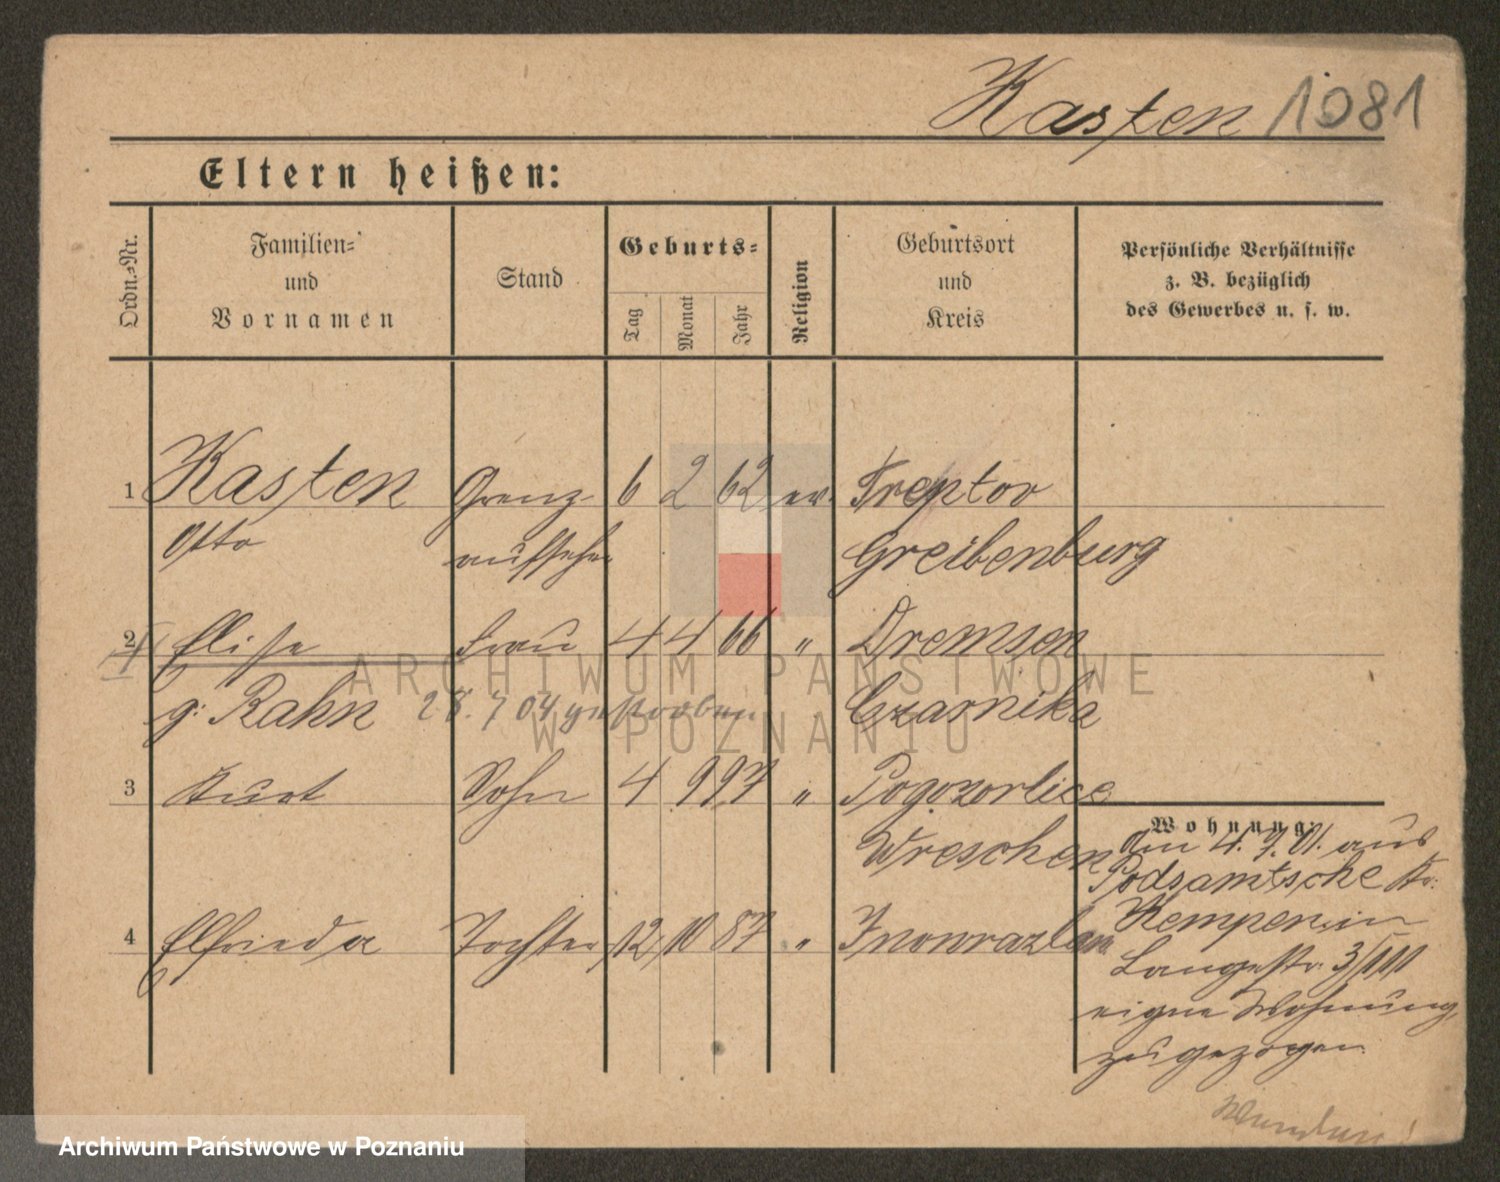 Kasten 1081
Eltern heißen:
Ordn.-Nr.
Familien-
und
Vornamen
Stand
Geburts-
Tag
Monat
Jahr
Religion
Geburtsort
und
Kreis
Persönliche Verhältnisse
z. B. bezüglich
des Gewerbes u. s. w.
1 Kasten Grenz 6 2 62 ev. Treptow
Otto aufseher Greibenburg
2 Elise Frau 4 4 66 " Dremsen
g. Rahn 28.7 04 gestorben Czarnika
3 Kurt Sohn 4 9 97 " Pogozorlice
Wreschen
4 Elfrieda Tochter 12 10 87 " Inowrazlaw
Wohnung:
Am 4. 7. 01. aus
Podsamtsche Kr.
Kempen, in
Langestr. 3/III
eigne Wohnung,
zugezogen
ARCHIWUM PAŃSTWOWE
W POZNANIU
Archiwum Państwowe w Poznaniu